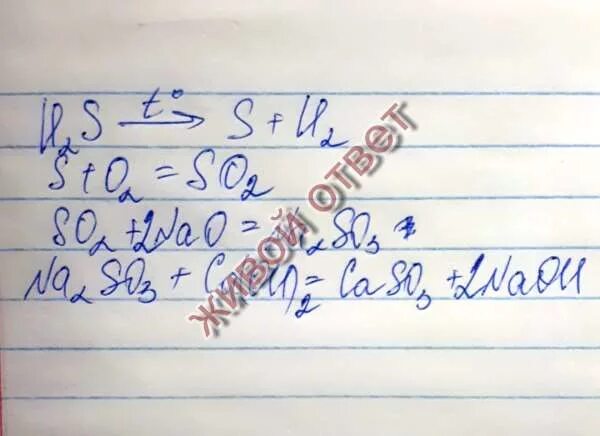 H₂S —t°→ S + H₂
S + O₂ = SO₂
SO₂ + 2NaO = Na₂SO₃
Na₂SO₃ + Ca(OH)₂ = CaSO₃ + 2NaOH
ЖИВОЙ ОТВЕТ